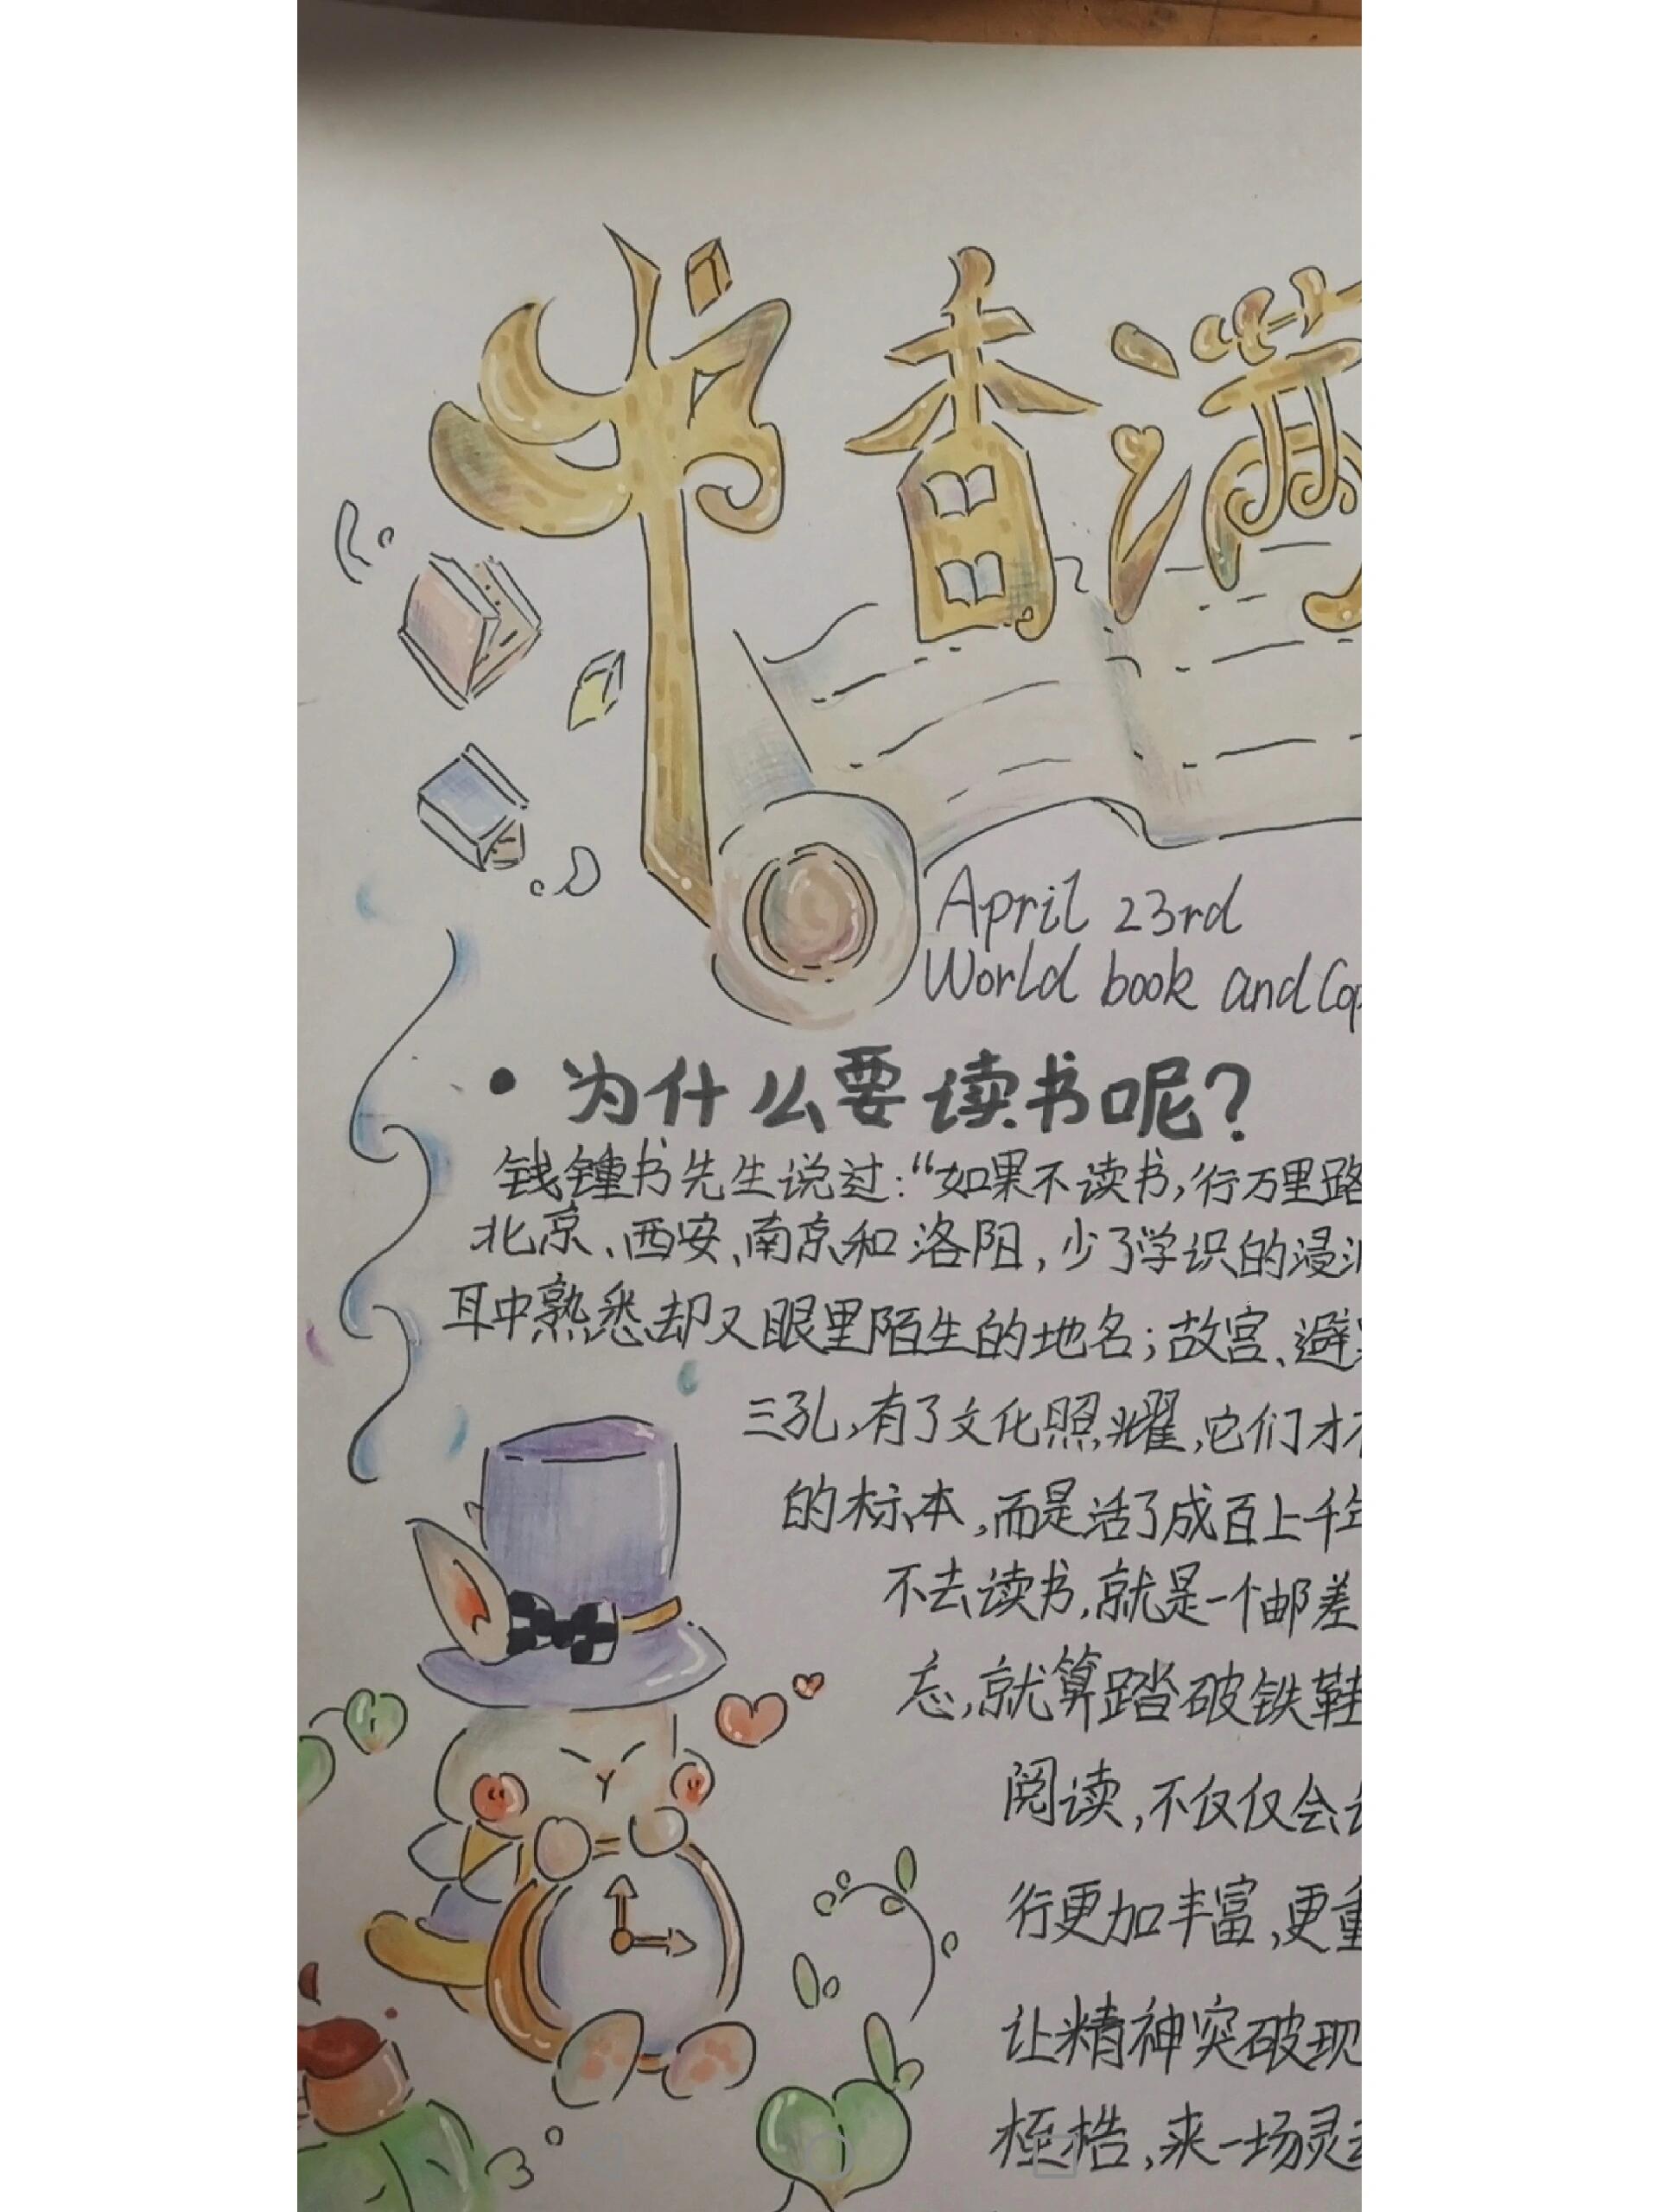 书香满
April 23rd
World book and Cop
为什么要读书呢?
钱锺书先生说过:“如果不读书,行万里路
北京、西安、南京和洛阳,少了学识的浸
耳中熟悉却又眼里陌生的地名;故宫、避
三孔,有了文化照耀,它们才
的标本,而是活了成百上千年
不去读书,就是一个邮差
忘,就算踏破铁鞋
阅读,不仅仅会
行更加丰富,更重
让精神突破现
桎梏,来一场灵